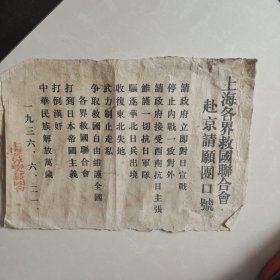 上海各界救國聯合會
赴京請願團口號
請政府立即對日宣戰
停止內戰一致對外
請政府接受西南抗日主張
維護一切抗日軍隊
驅逐華北日兵出境
收復東北失地
武力制止走私
爭取救國自由維護全國
各界救國聯合會
打到日本帝國主義
打倒漢奸
中華民族解放萬歲
一九三六.六.二一